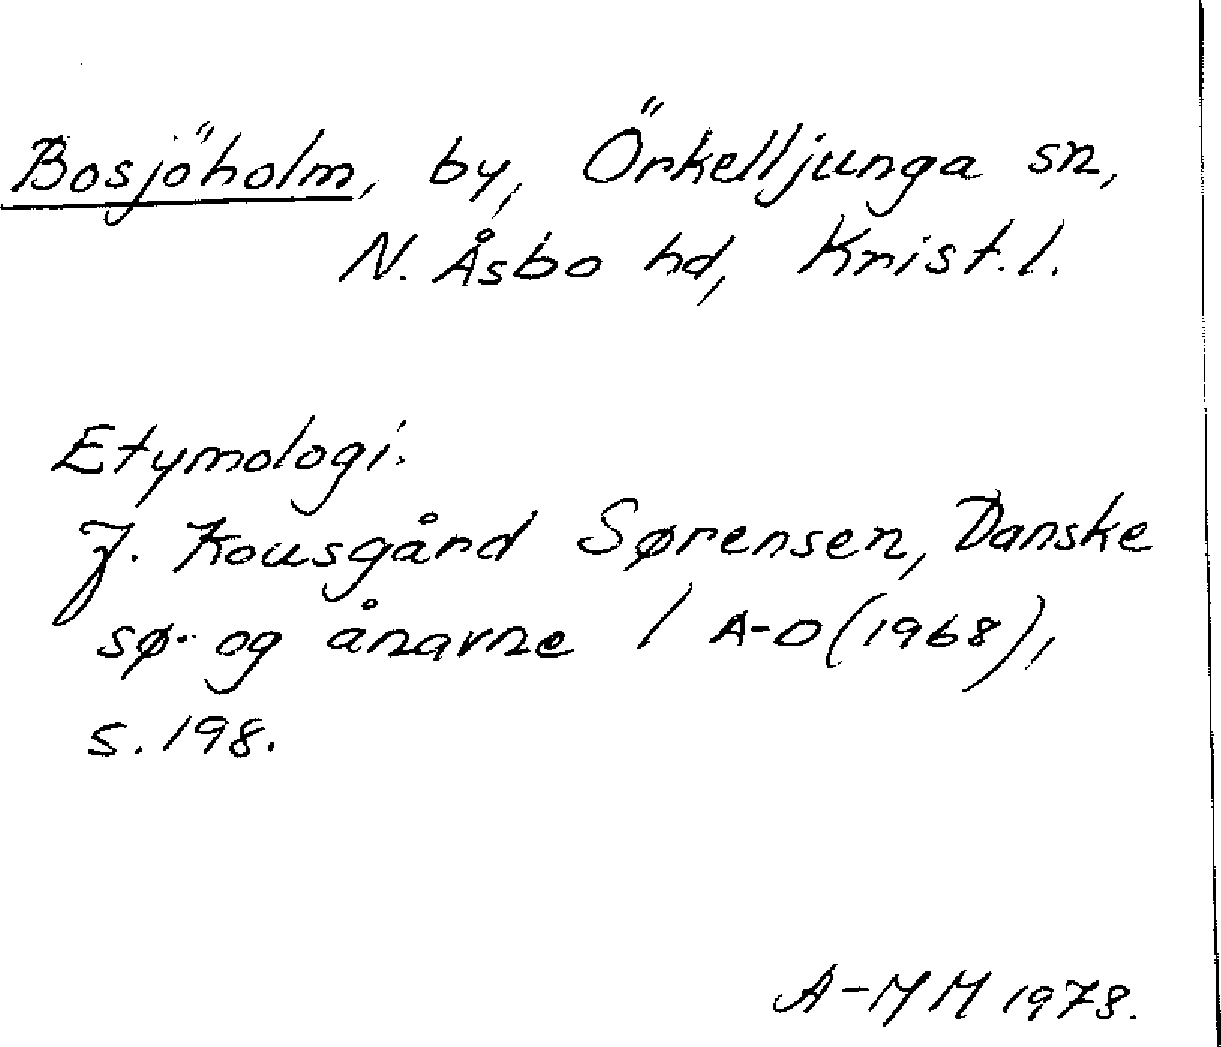 Bosjöholm, by, Örkelljunga sn,
N. Åsbo hd, Krist. l.
Etymologi:
J. Kousgård Sørensen, Danske
sø- og ånavne 1 A-D (1968),
s. 198.
A-MM 1978.